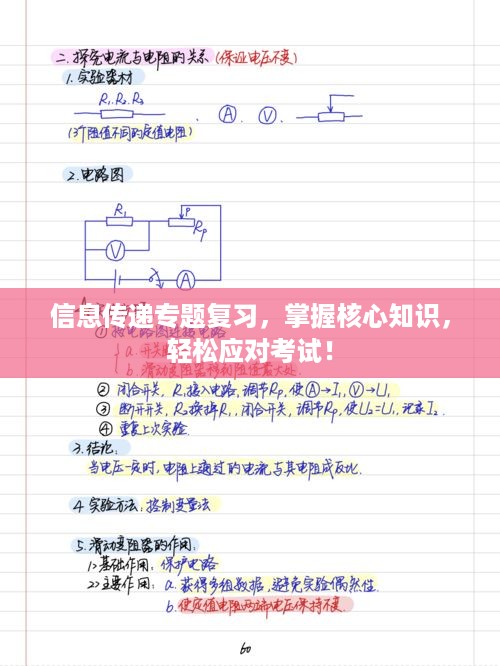 二.探究电流与电阻的关系(保证电压不变)
1.实验器材
R₁.R₂.R₃
A V
(3个阻值不同的定值电阻)
2.电路图
R₁ P
Rₚ
V
A
信息传递专题复习，掌握核心知识，
轻松应对考试！
② 闭合开关，R₁接入电路，调节Rₚ，使Ⓐ→I₁，Ⓥ→U₁
③ 断开开关，R₂换掉R₁，闭合开关，调节Rₚ，使U₂=U₁，记录I₂.
④ 重复上次实验.
3.结论：
当电压一定时，电阻上通过的电流与其电阻成反比.
4.实验方法：控制变量法
5.滑动变阻器的作用：
1>基础作用：保护电路
2>主要作用：a.获得多组数据，避免实验偶然性.
b.使定值电阻两端电压保持不变.
60